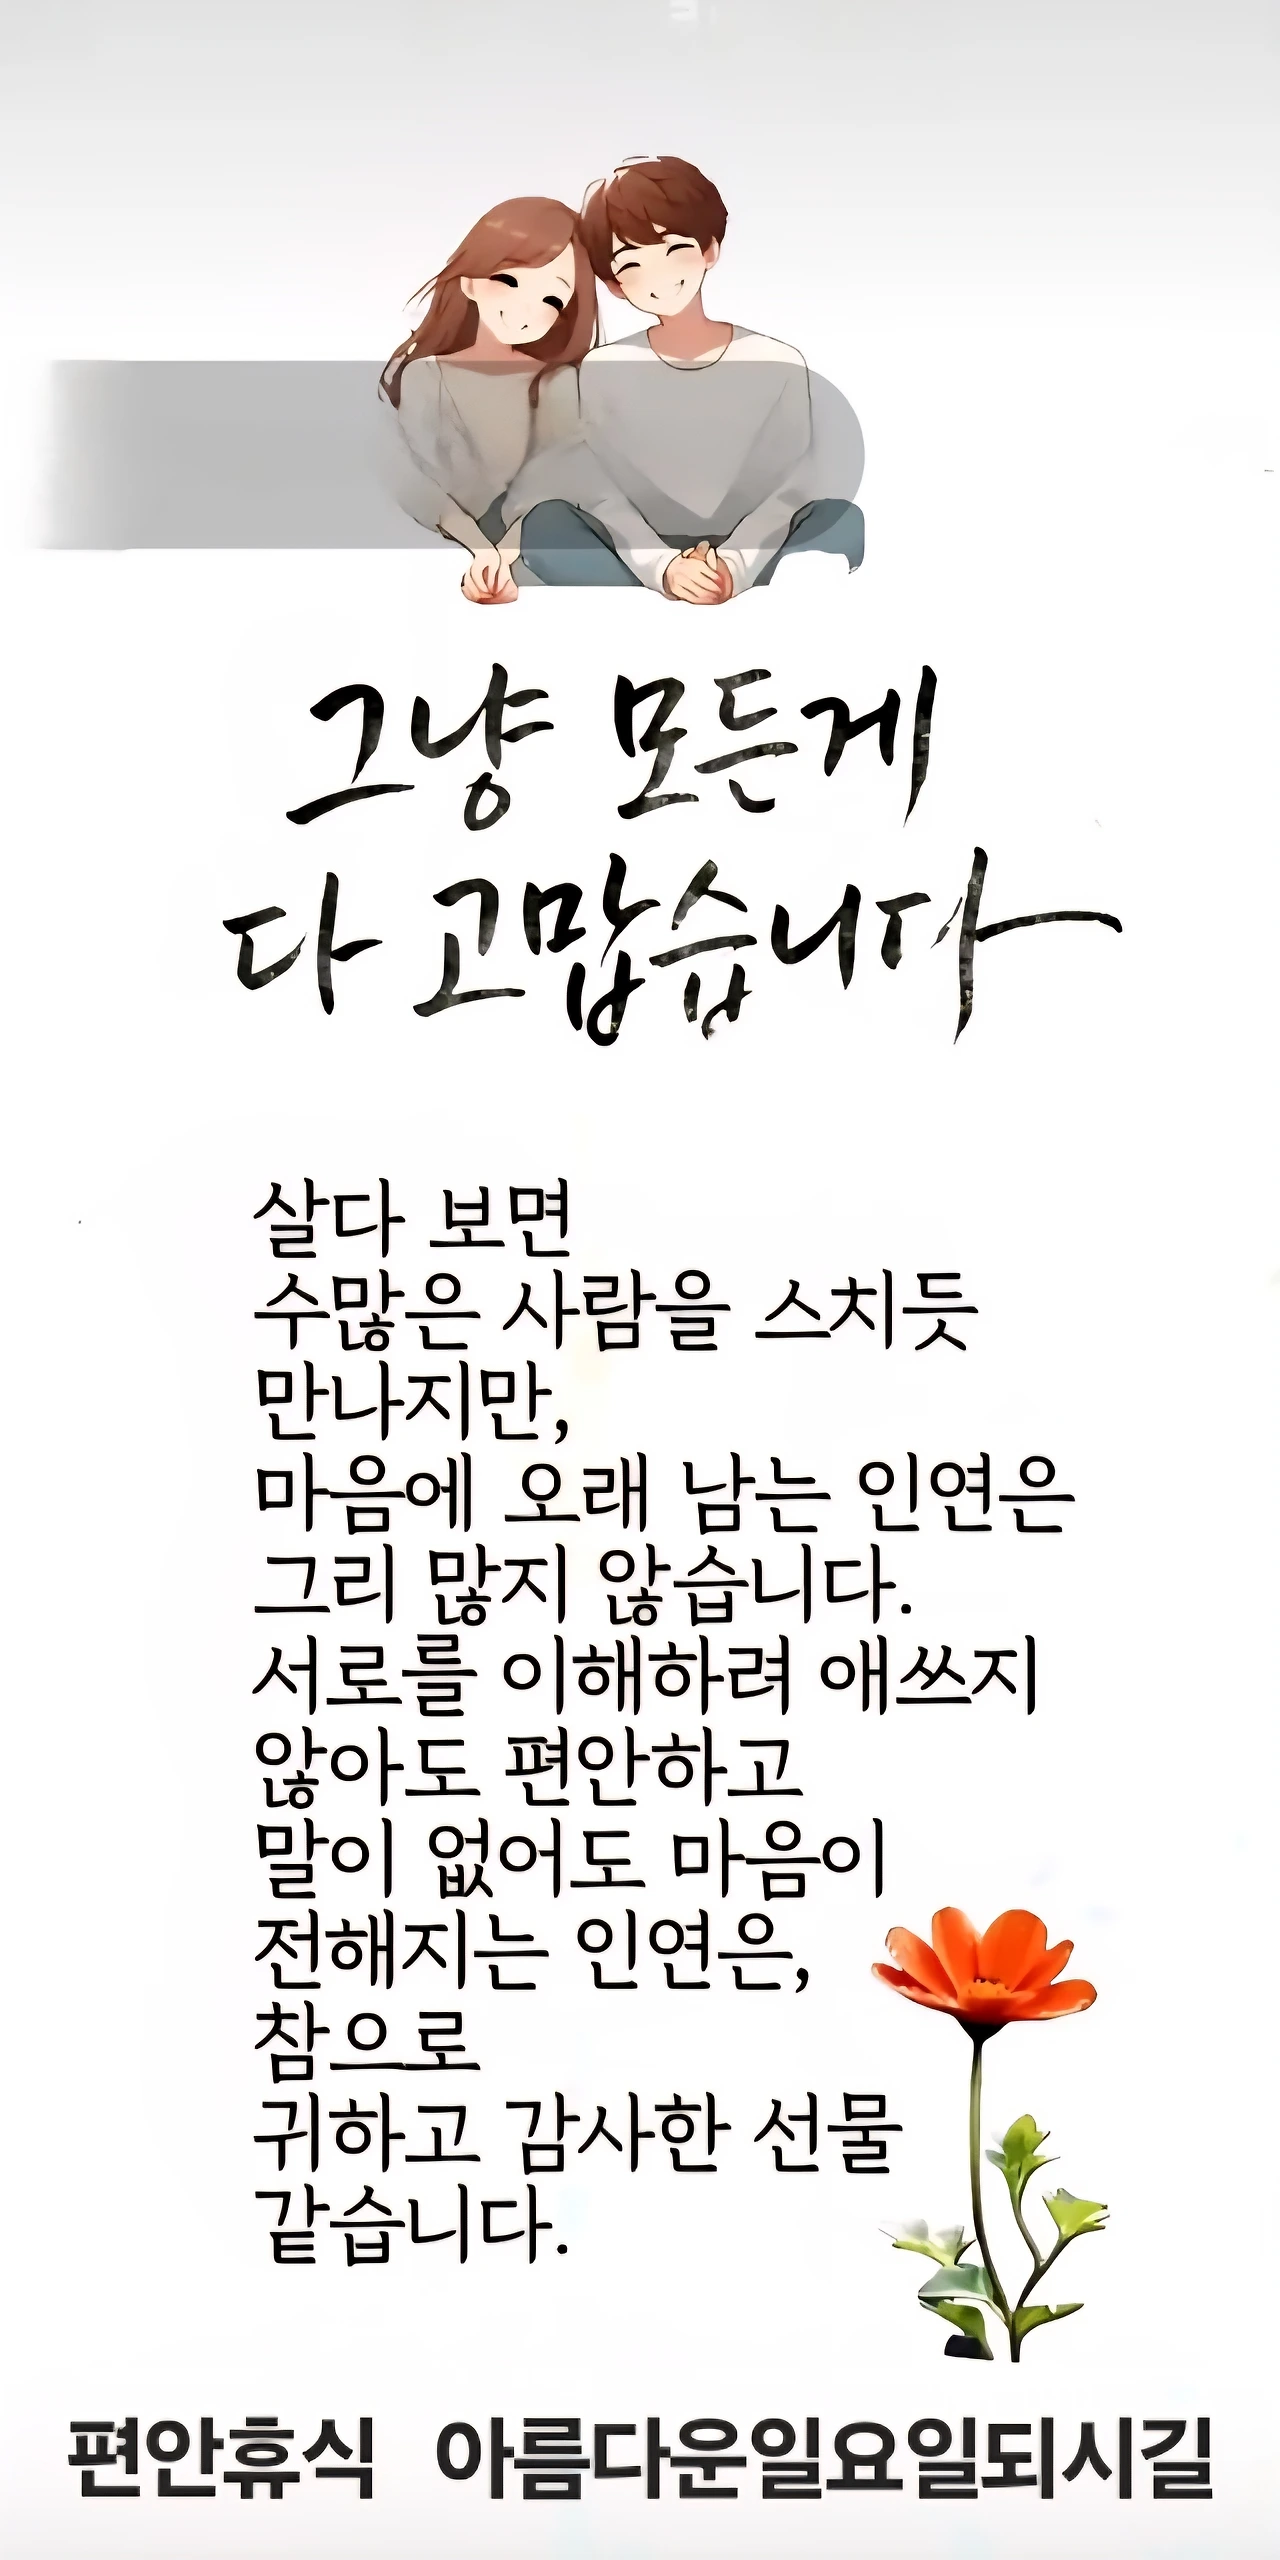 그냥 모든게
다 고맙습니다
살다 보면
수많은 사람을 스치듯
만나지만,
마음에 오래 남는 인연은
그리 많지 않습니다.
서로를 이해하려 애쓰지
않아도 편안하고
말이 없어도 마음이
전해지는 인연은,
참으로
귀하고 감사한 선물
같습니다.
편안휴식 아름다운일요일되시길